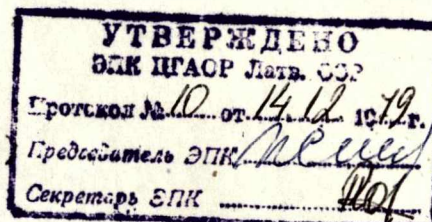 УТВЕРЖДЕНО
ЭПК ЦГАОР Латв. ССР
Протокол № 10 от 14.12 1979г.
Председатель ЭПК
Секретарь ЭПК